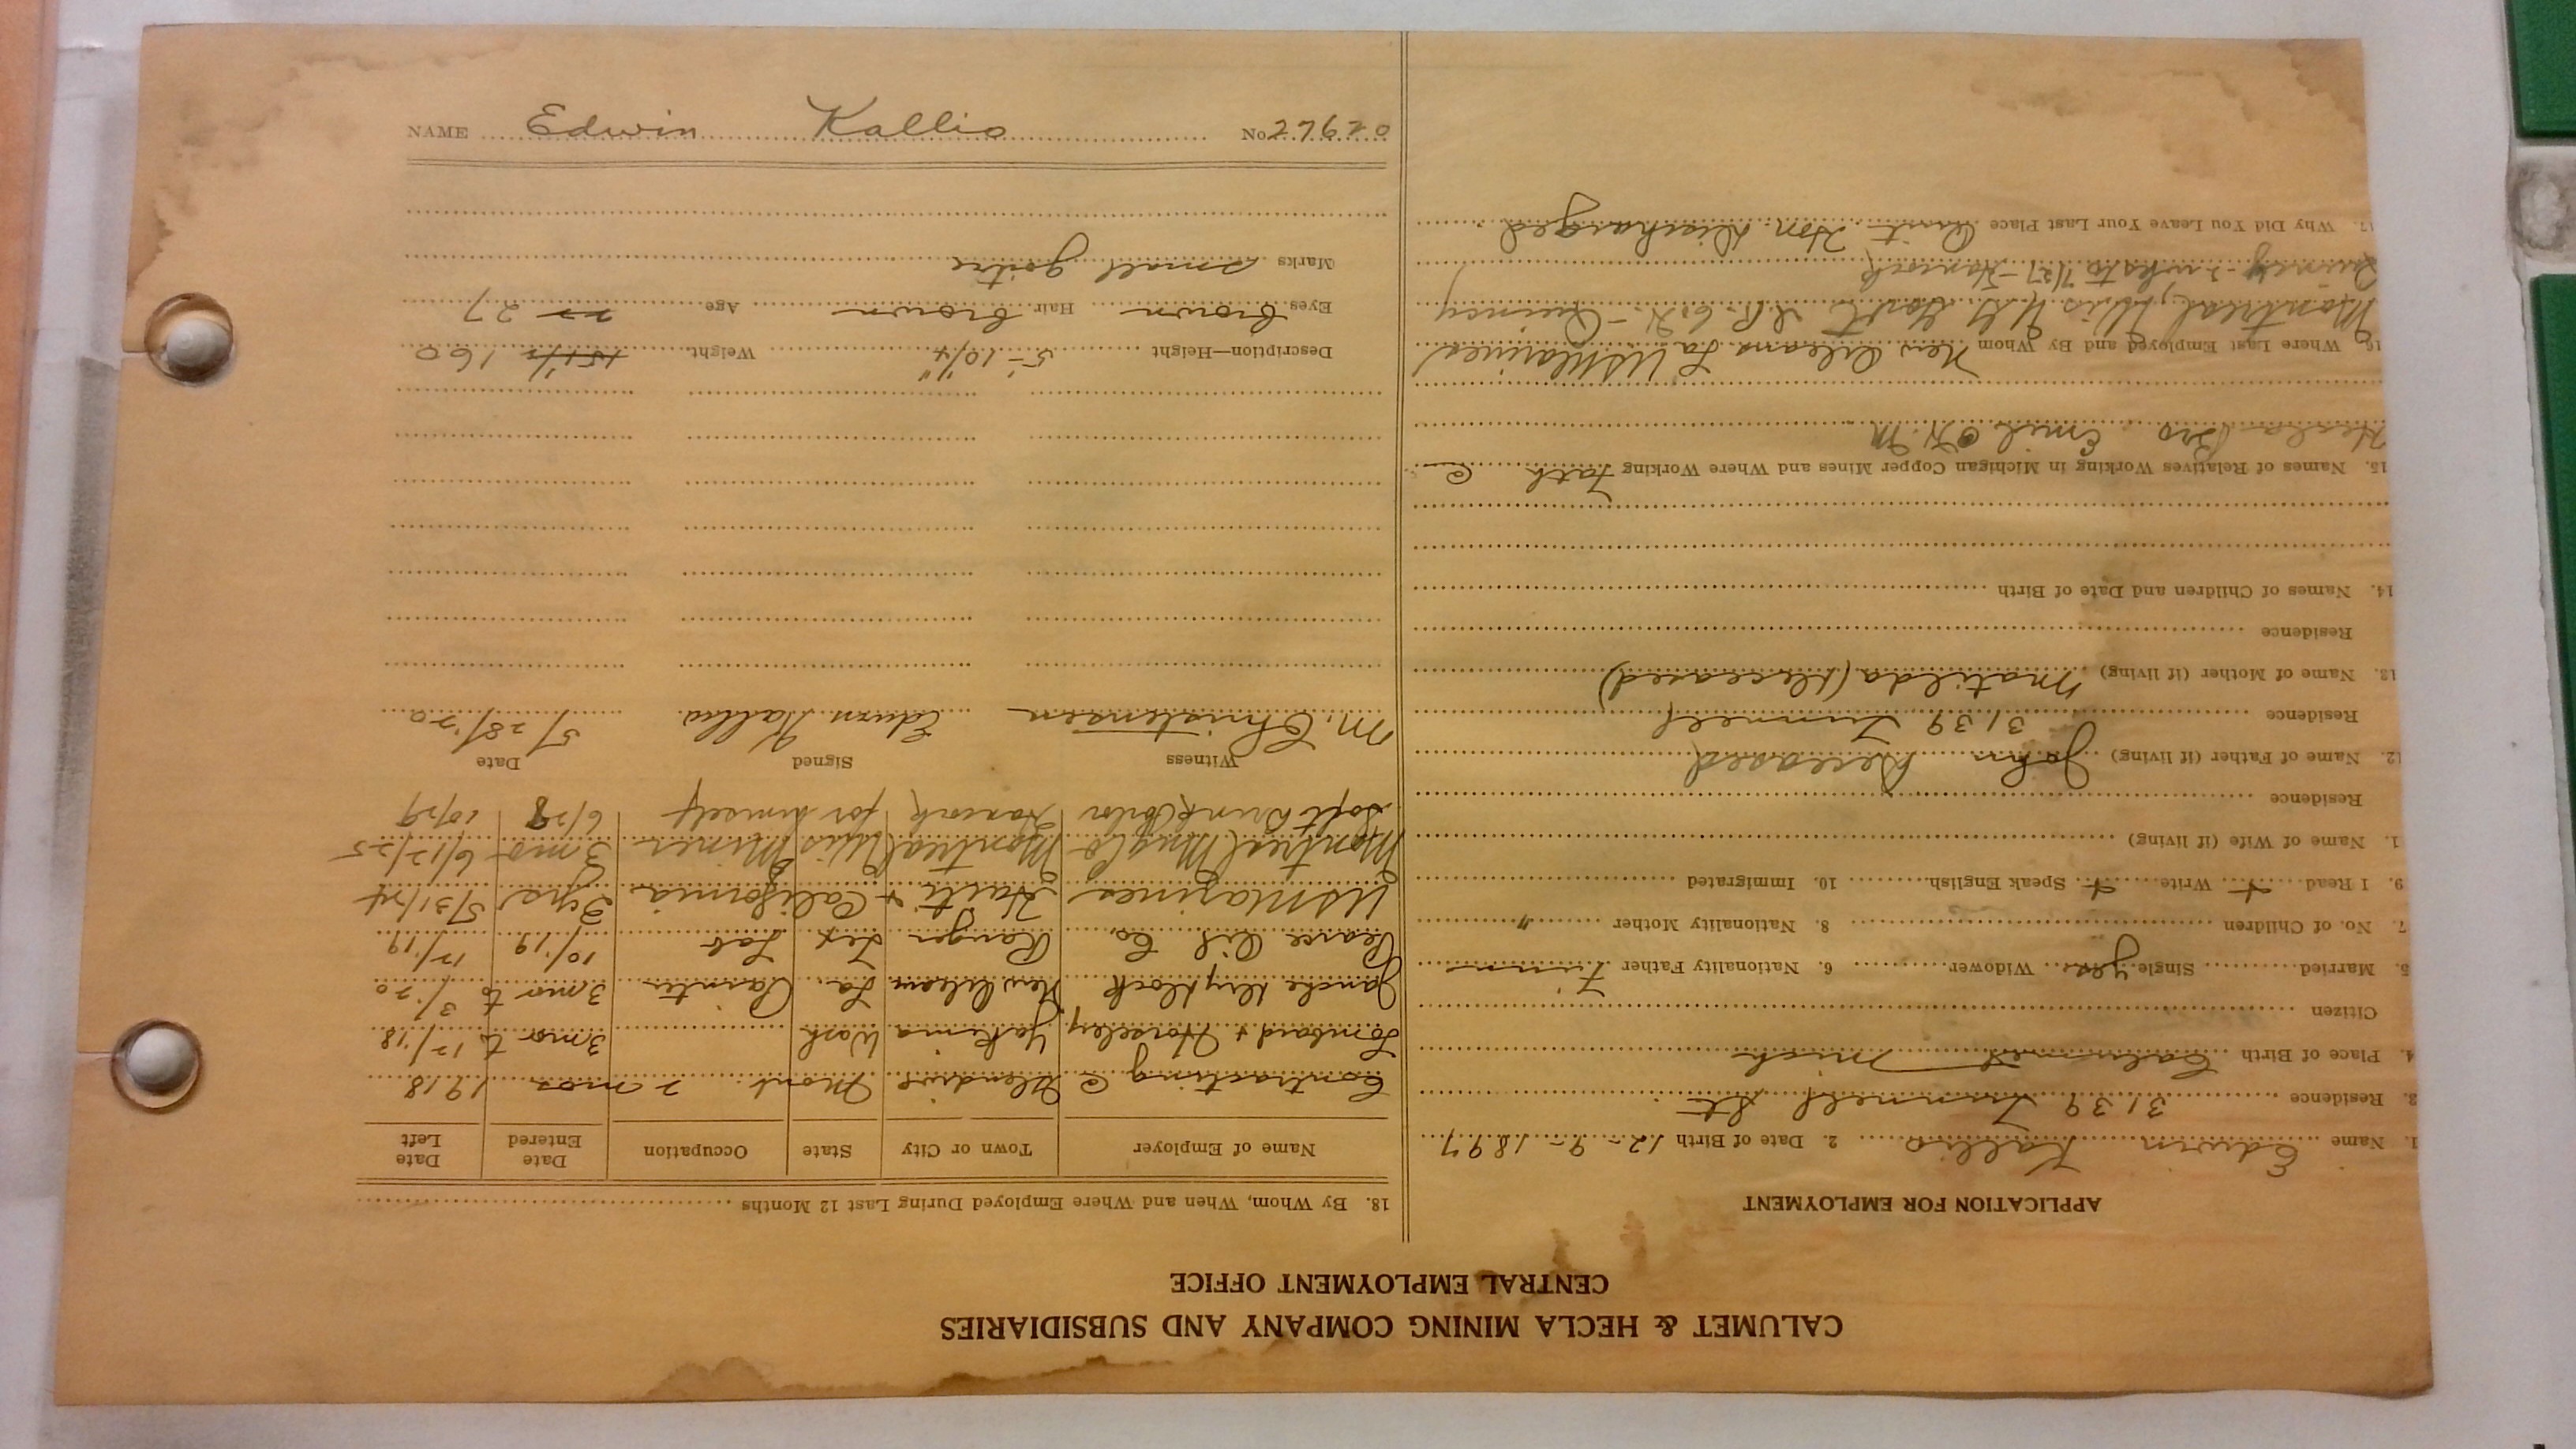 CALUMET & HECLA MINING COMPANY AND SUBSIDIARIES
CENTRAL EMPLOYMENT OFFICE
APPLICATION FOR EMPLOYMENT
1. Name Edwin Kallio 2. Date of Birth 12-9-1897
3. Residence 3139 St
4. Place of Birth Calumet Mich
Citizen
5. Married Single yes Widower 6. Nationality Father Finn
7. No. of Children 8. Nationality Mother "
9. I Read + Write + Speak English 10. Immigrated
11. Name of Wife (if living)
Residence
12. Name of Father (if living) John Deceased
Residence 3139
13. Name of Mother (if living) Matilda (deceased)
Residence
14. Names of Children and Date of Birth
15. Names of Relatives Working in Michigan Copper Mines and Where Working Fath C
Hecla Bro Emil
16. Where Last Employed and By Whom New Orleans La US Marines
Montreal, Wis C.H. - Quincy
Quincy - 2 wks to 7/27 - Hancock
17. Why Did You Leave Your Last Place Quit Hon. Discharged
18. By Whom, When and Where Employed During Last 12 Months
Name of Employer Town or City State Occupation Date Entered Date Left
Contracting C Glendive Mont. 2 mos 1918
Lombard & Horsley Yakima Wash 3 mo to 12/18
Jancke Dry Dock New Orleans La. Painter 3 mo to 3/20
Pearce Oil Co. Ranger Tex Lab 10/19 12/19
US Marines Haiti + California 3 yrs 5/31/24
Montreal Mng Co Montreal Wis Miner 3 mo 6/12/25
Soft Drink Parlor Hancock for himself 6/28 10/29
Witness Signed Date
M. Christensen Edwin Kallio 5/28/20
Description—Height 5'-10 1/4" Weight 151 1/2 160
Eyes brown Hair brown Age 22 27
Marks small goitre
NAME Edwin Kallio No 27620